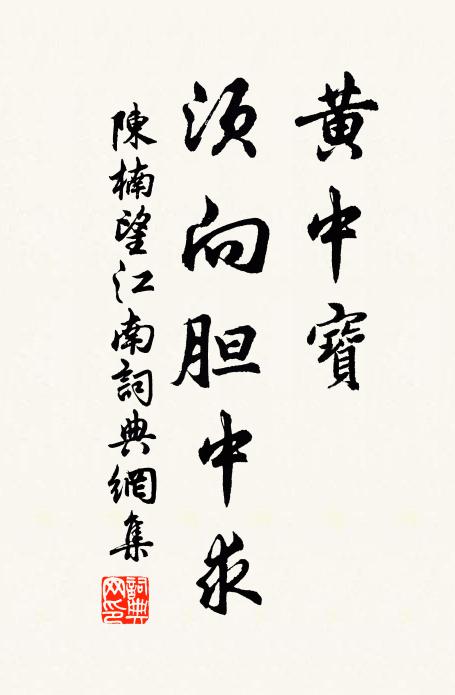 黃中寶
須向胆中求
陳楠望江南詞典網集
詞典網印